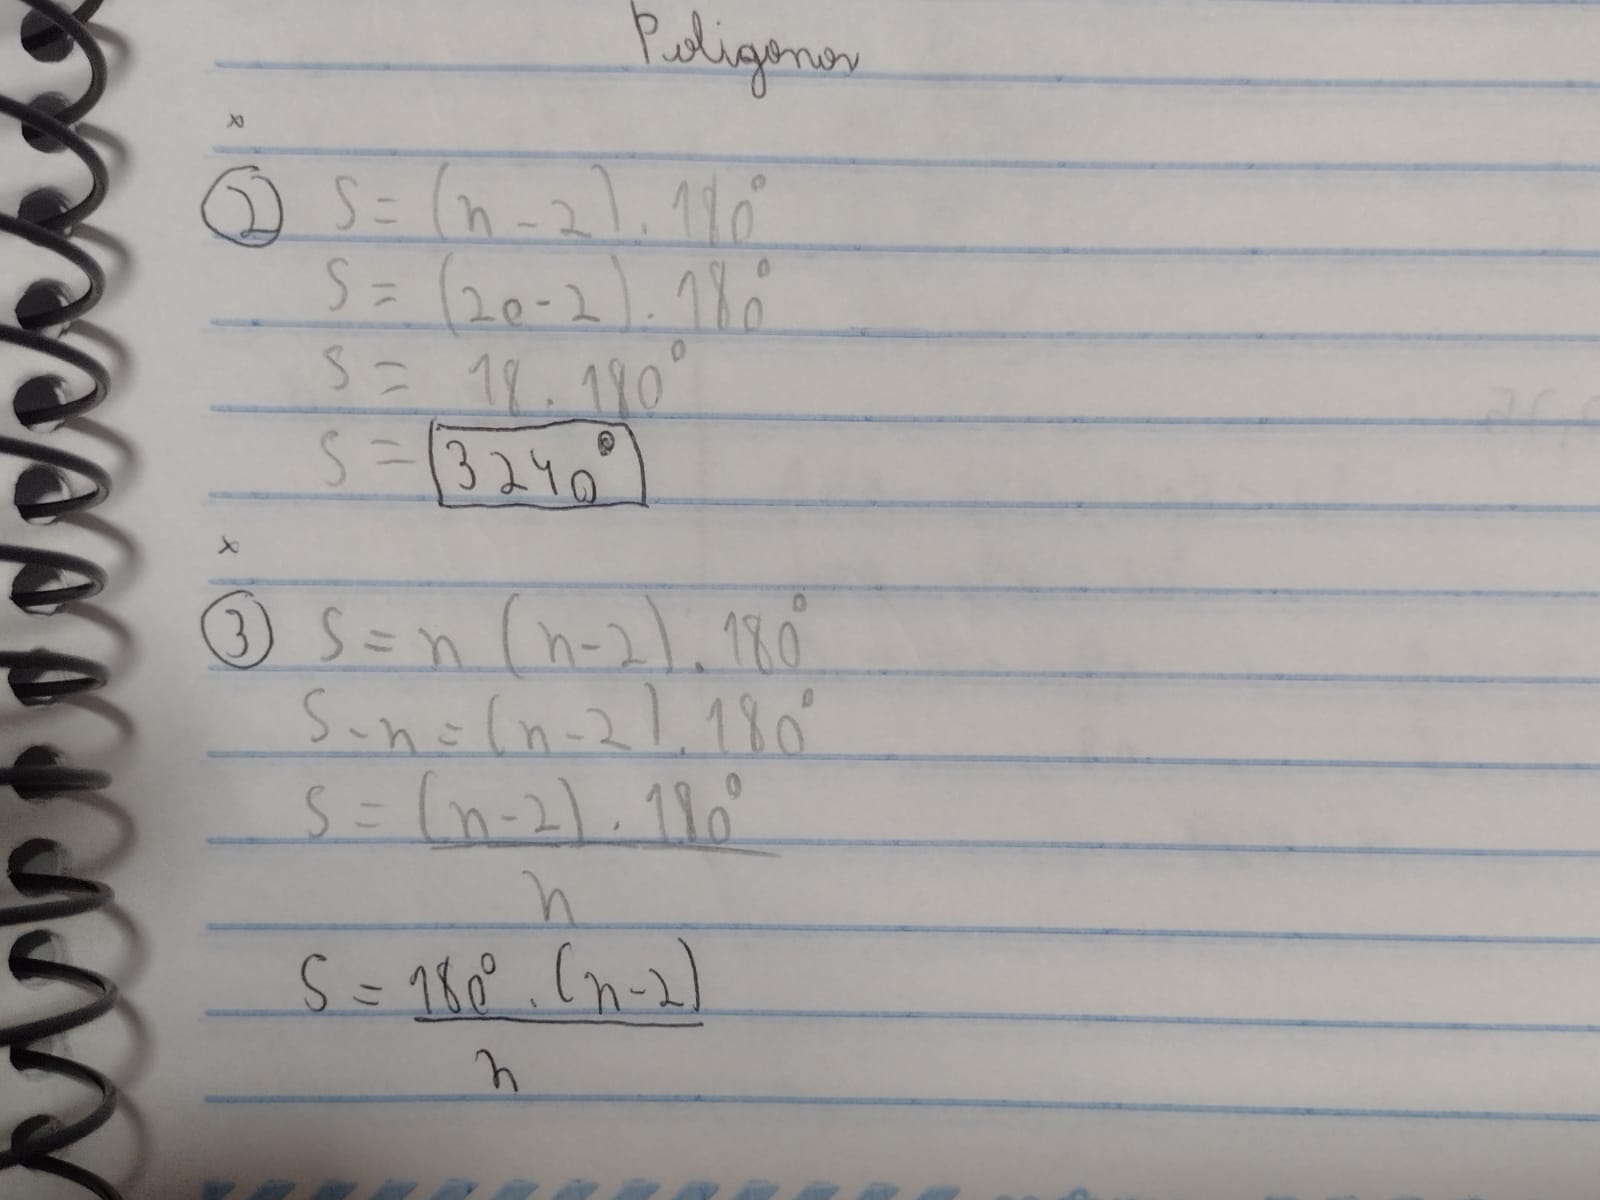 Poligonos
x
② S = (n - 2). 180°
S = (20 - 2). 180°
S = 18 . 180°
S = 3240°
x
③ S = n (n-2). 180°
S-n = (n-2). 180°
S = (n-2). 180°
n
S = 180° . (n-2)
n